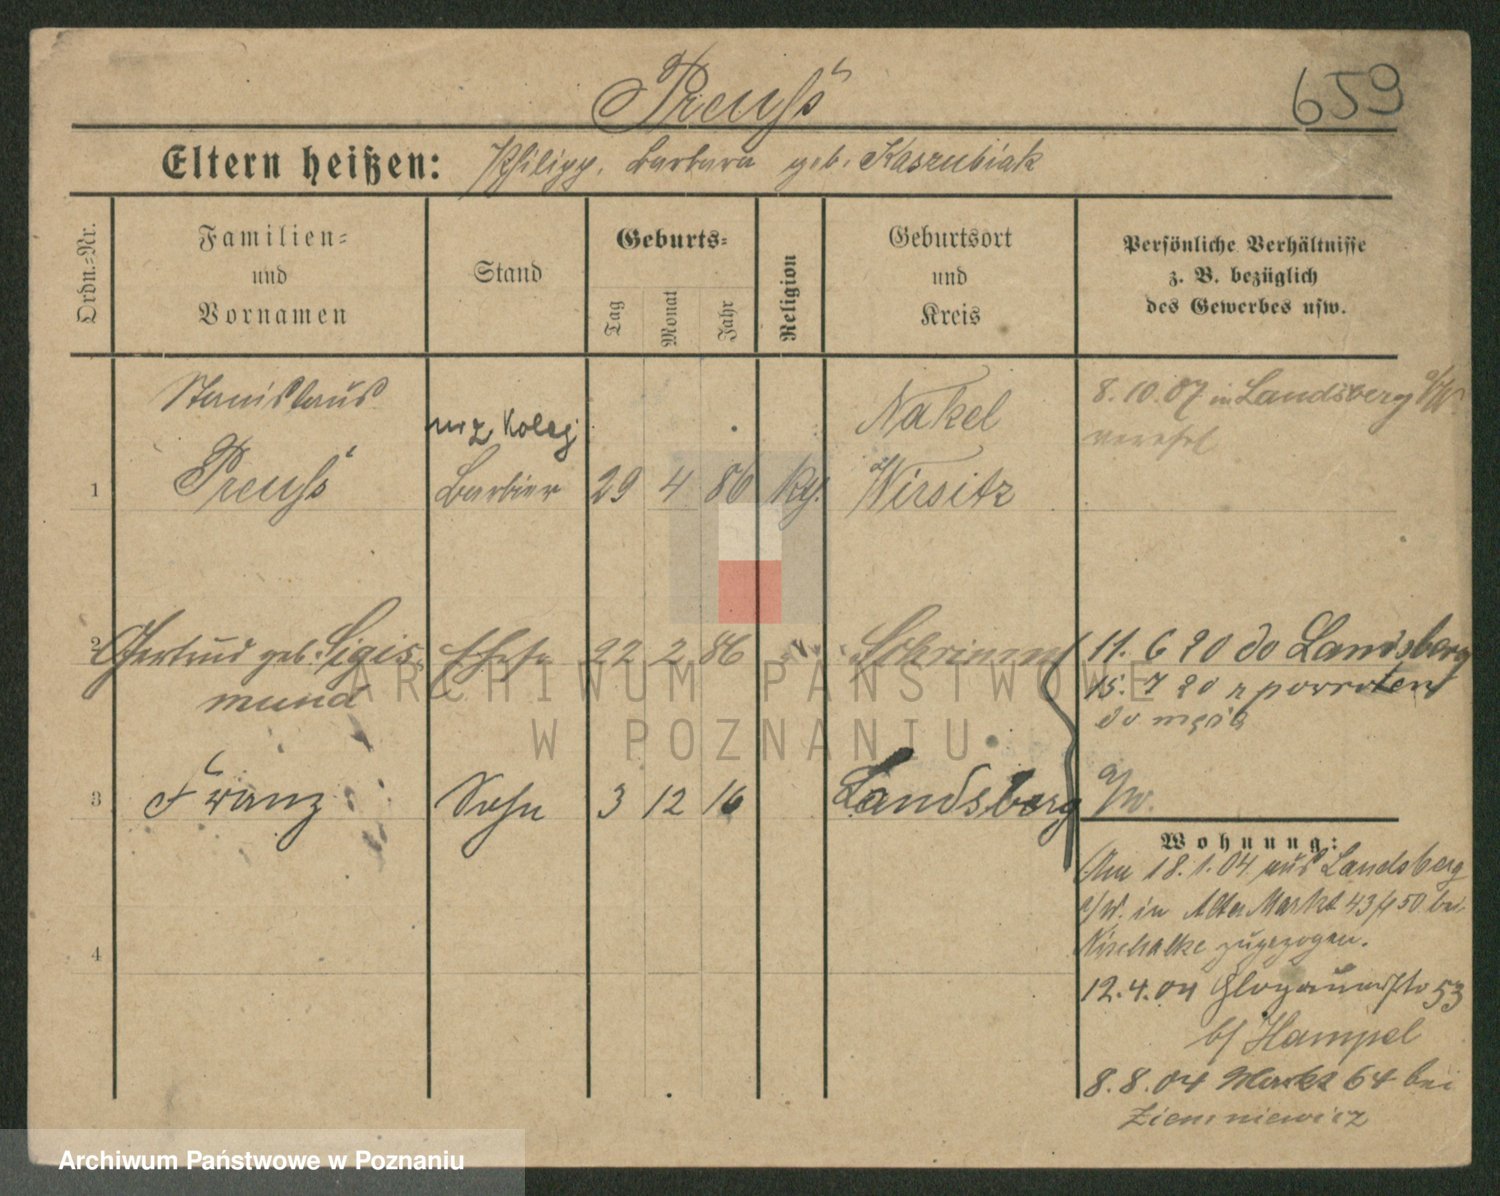 Preuß
659
Eltern heißen: Philipp, Barbara geb. Kaszubiak
Ordn.-Nr.
Familien-
und
Vornamen
Stand
Geburts-
Tag
Monat
Jahr
Religion
Geburtsort
und
Kreis
Persönliche Verhältnisse
z. B. bezüglich
des Gewerbes usw.
Stanislaus
urz Kolej
Nakel
8.10.07 in Landsberg a/W.
1 Preuß Barbier 29 4 86 kg. Wirsitz
2 Gertrud geb. Sigis Ehefr 22 2 86 Schrimm
mund
11. 6 20 do Landsberg
15. 7 20 z powrotem
do męża
3 Franz Sohn 3 12 16 Landsberg
a/W.
Wohnung:
Am 18.1.04 aus Landsberg
a/W. in Alter Markt 43/450 bei
zugezogen.
12.4.04 53
b/ Hampel
8.8.04 Markt 64 bei
Ziemniewicz
4
ARCHIWUM PAŃSTWOWE
W POZNANIU
Archiwum Państwowe w Poznaniu